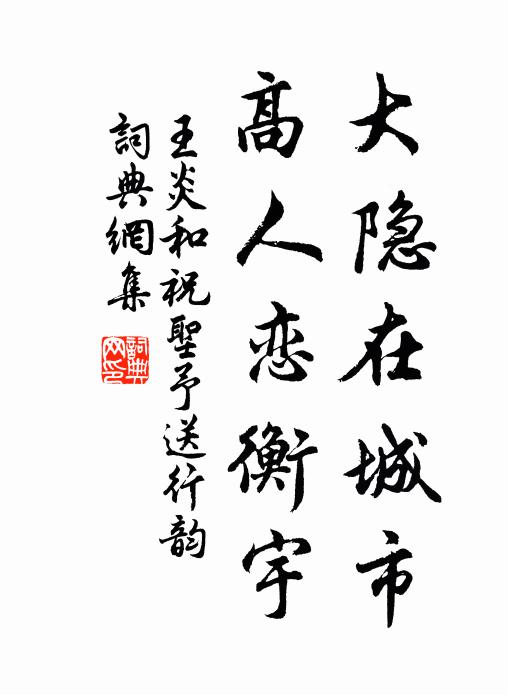 大隐在城市
高人恋衡宇
王炎和祝聖予送行韵
詞典網集
詞典网印